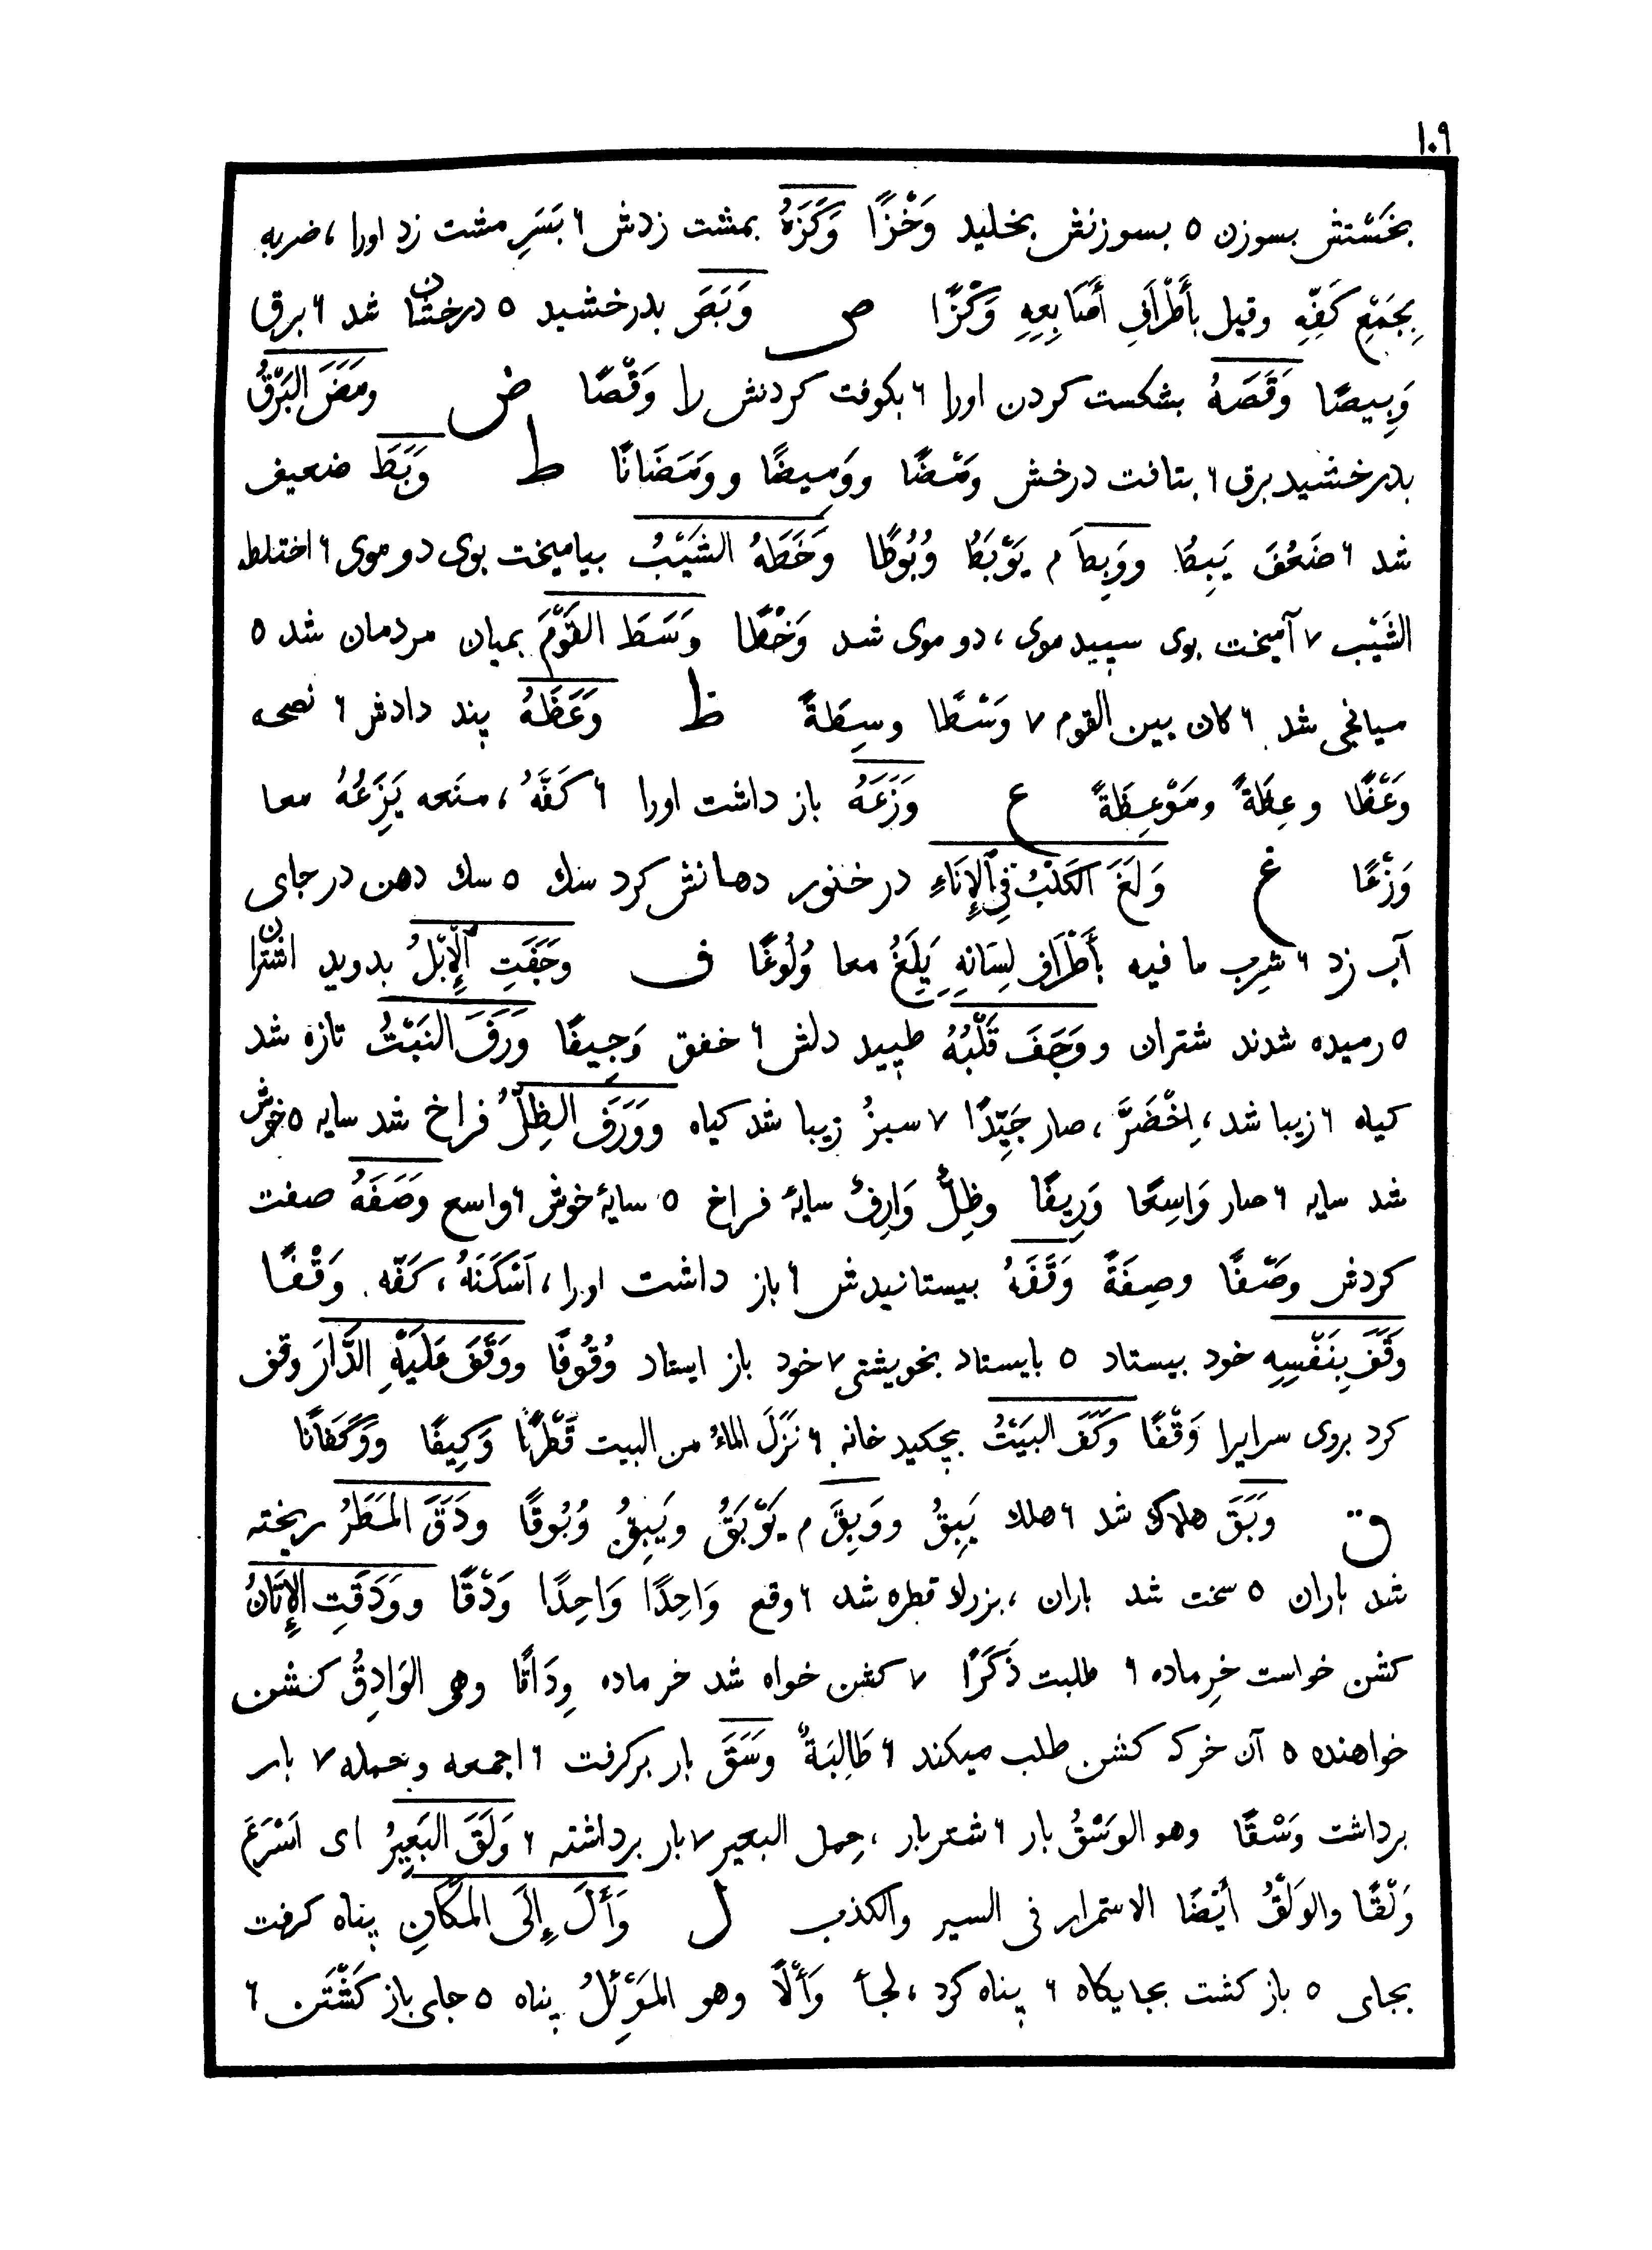 ۱۰۹
بخَسْتش بسوزن ٥ بسوزنش بخلید وَخْزًا وَكَزَهُ بمشت زدش ٦ بَسَرِ مشت زد اورا ، ضربه
بِجَمْعِ كَفِّهِ وقیل بأَطْرَافِ أَصَابِعِهِ وَكْزًا ص وَبَصَ بدرخشید ٥ درخشان شد ٦ برق
وَبِیصًا وَقَصَهُ بشکست کردن اورا ٦ بکوفت کردنش را وَقْصًا ض ومَضَ البَرْقُ
بدرخشید برق ٦ بتافت درخش ومْضًا ووَمِیضًا وومَضَانًا ط وَبَطَ ضعیف
شد ٦ ضَعُفَ یَبِطُ ووَبِطَ م یَوْبَطُ وُبُوطًا وَخَطَهُ الشَیْبُ بیامیخت بوی دو موی ٦ اختلط
الشَیْب ٧ آمیخت بوی سپید موی ، دو موی شد وَخْطًا وَسَطَ القَوْمَ بمیان مردمان شد ٥
میانجی شد ٦ کان بین القوم ٧ وَسْطًا وسِطَةً ظ وَعَظَهُ پند دادش ٦ نصحه
وَعْظًا وعِظَةً ومَوْعِظَةً ع وَزَعَهُ باز داشت اورا ٦ کَفَّهُ ، منَعه یَزَِعُهُ معا
وَزْعًا غ وَلَغَ الکَلْبُ فِی الإِنَاءِ در خنور دهانش کرد سك ٥ سك دهن در جای
آب زد ٦ شرِب ما فیه بأَطْرَافِ لِسَانِهِ یَلَِغُ معا وُلُوغًا ف وجَفَتِ الإِبْلُ بدوید اشترا
٥ رمیده شدند شتران ووَجَفَ قَلْبُهُ طپید دلش ٦ خفق وَجِیفًا وَرَفَ النَبْتُ تازه شد
کیاه ٦ زیبا شد ، اِخْضَرَّ ، صار جَیِّدًا ٧ سبزُ زیبا شد کیاه ووَرَفَ الظِلُّ فراخ شد سایه ٥ خوش
شد سایه ٦ صار وَاسِعًا وَرِیفًا وظِلٌّ وَارِفٌ سایۀ فراخ ٥ سایۀ خوش ٦ واسع وَصَفَهُ صفت
کردش وصْفًا وصِفَةً وَقَفَهُ بیستانیدش ٦ باز داشت اورا ، اَسْکَنَهُ ، کَفّه وَقْفًا
وَقَفَ بِنَفْسِهِ خود بیستاد ٥ بایستاد بخویشتی ٧ خود باز ایستاد وُقُوفًا ووَقَفَ عَلَیْهِ الدَّارَ وقف
کرد بروی سرایرا وَقْفًا وَکَفَ البَیْتُ بچکید خانه ٦ نَزَلَ الماءُ من البیت قَطْرًا وَکِیفًا ووَکَفَانًا
ق وَبَقَ هلاك شد ٦ هلك یَبِقُ ووَبِقَ م یَوْبَقُ ویَبِقُ وُبُوقًا ودَقَ المَطَرُ ریخته
شد باران ٥ سخت شد باران ، بزرك قطره شد ٦ وقع وَاحِدًا وَاحِدًا وَدْقًا ووَدَقَتِ الإتَانُ
کشن خواست خرِماده ٦ طلبت ذَکَرًا ٧ کشن خواه شد خر ماده وِدَاقًا وهی الوَادِقُ کشن
خواهنده ٥ آن خرکه کشن طلب میکند ٦ طَالِبَةٌ وسَقَ بار برکرفت ٦ اجمعه وحمله ٧ بار
برداشت وَسْقًا وهو الوَسْقُ بار ٦ شتربار ، حِمل البعیر ٧ بار برداشته ٦ وَلَقَ البَعِیرُ ای اَسْرَعَ
وَلْقًا والوَلْقُ أیْضًا الاستمرار فی السیر والکذب ل وَأَلَ إِلَی المَکَانِ پناه کرفت
بجای ٥ باز کشت بجایکاه ٦ پناه کرد ، لجأ وَأْلًا وهو المَوْئِلُ پناه ٥ جای باز کَشْتَن ٦